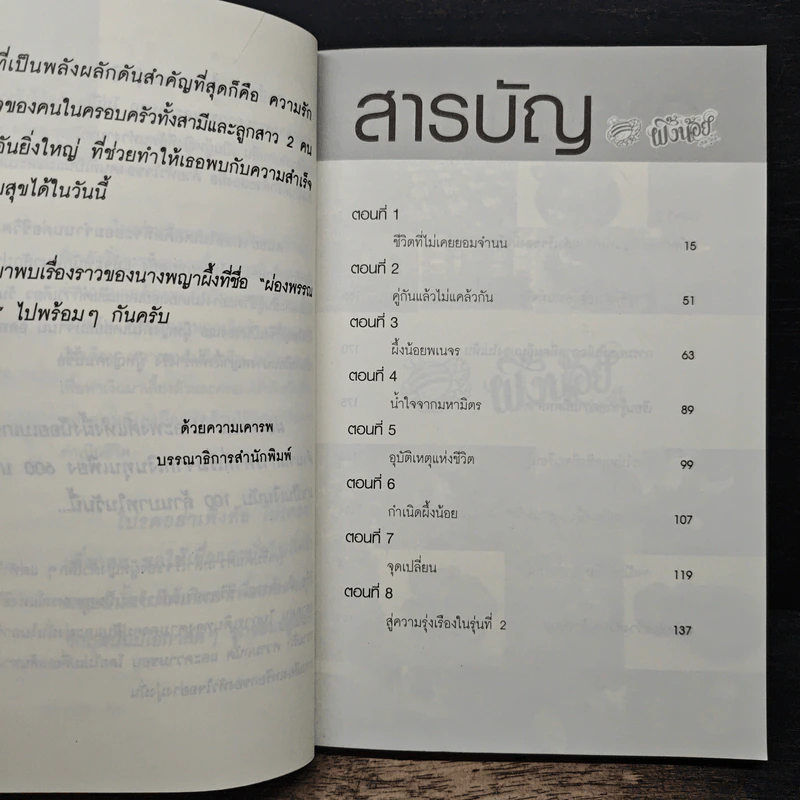 ที่เป็นพลังผลักดันสำคัญที่สุดก็คือ ความรัก
ของคนในครอบครัวทั้งสามีและลูกสาว 2 คน
อันยิ่งใหญ่ ที่ช่วยทำให้เธอพบกับความสำเร็จ
สุขได้ในวันนี้
มาพบเรื่องราวของนางพญาผึ้งที่ชื่อ “ผ่องพรรณ
” ไปพร้อมๆ กันครับ
ด้วยความเคารพ
บรรณาธิการสำนักพิมพ์
สารบัญ
ผึ้งน้อย
ตอนที่ 1
ชีวิตที่ไม่เคยยอมจำนน 15
ตอนที่ 2
คู่กันแล้วไม่แคล้วกัน 51
ตอนที่ 3
ผึ้งน้อยพเนจร 63
ตอนที่ 4
น้ำใจจากมหามิตร 89
ตอนที่ 5
อุบัติเหตุแห่งชีวิต 99
ตอนที่ 6
กำเนิดผึ้งน้อย 107
ตอนที่ 7
จุดเปลี่ยน 119
ตอนที่ 8
สู่ความรุ่งเรืองในรุ่นที่ 2 137